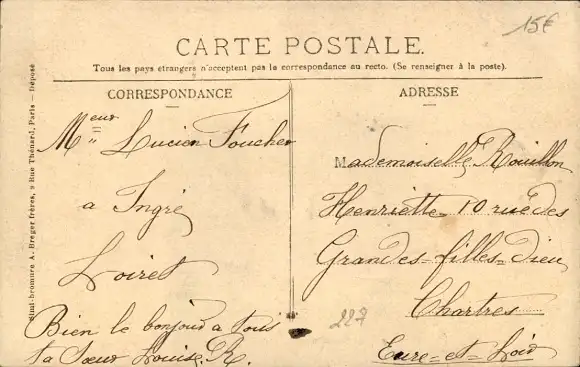 15€
CARTE POSTALE.
Tous les pays étrangers n'acceptent pas la correspondance au recto. (Se renseigner à la poste).
CORRESPONDANCE
Meur Lucien Foucher
a Ingré
Loiret
Bien le bonjour a tous
ta Sœur Louise. R.
ADRESSE
Mademoiselle Rouillon
Henriette 10 rue des
Grandes-filles-Dieu
Chartres
Eure-et-Loir
227
A. Breger frères, 9 Rue Thénard, Paris — Déposé